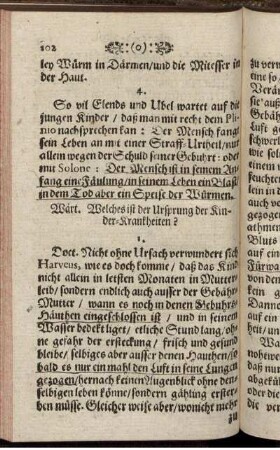 102 (o)
ley Würm in Därmen/und die Mitesser in
der Haut.
4.
So vil Elends und Ubel wartet auf die
jungen Kinder / daß man mit recht dem Pli-
nio nachsprechen kan: Der Mensch fangt
sein Leben an mit einer Straff-Urtheil/nur
allein wegen der Schuld seiner Gebuhrt: oder
mit Solone: Der Mensch ist in seinem An-
fang eine Fäulung/in seinem Leben ein Blast
in dem Tod aber ein Speise der Würmen.
Wärt. Welches ist der Ursprung der Kin-
der-Krankheiten?
1.
Doct. Nicht ohne Ursach verwundert sich
Harveus, wie es doch komme / daß das Kind
nicht allein in letsten Monaten in Mutter-
leib/ sondern endlich auch ausser der Gebähr-
Mutter / wann es noch in denen Gebuhrts-
Häuthen eingeschlossen ist / und in seinem
Wasser bedekt liget/ etliche Stund lang/ oh-
ne gefahr der ersteckung / frisch und gesund
bleibe/ selbiges aber ausser denen Hauthen/so
bald es nur ein mahl den Luft in seine Lungen
gezogen/hernach keinen Augenblick ohne den-
selbigen leben könne/ sondern gähling erster-
ben müsse. Gleicher weise aber/wo nicht mehr
zu